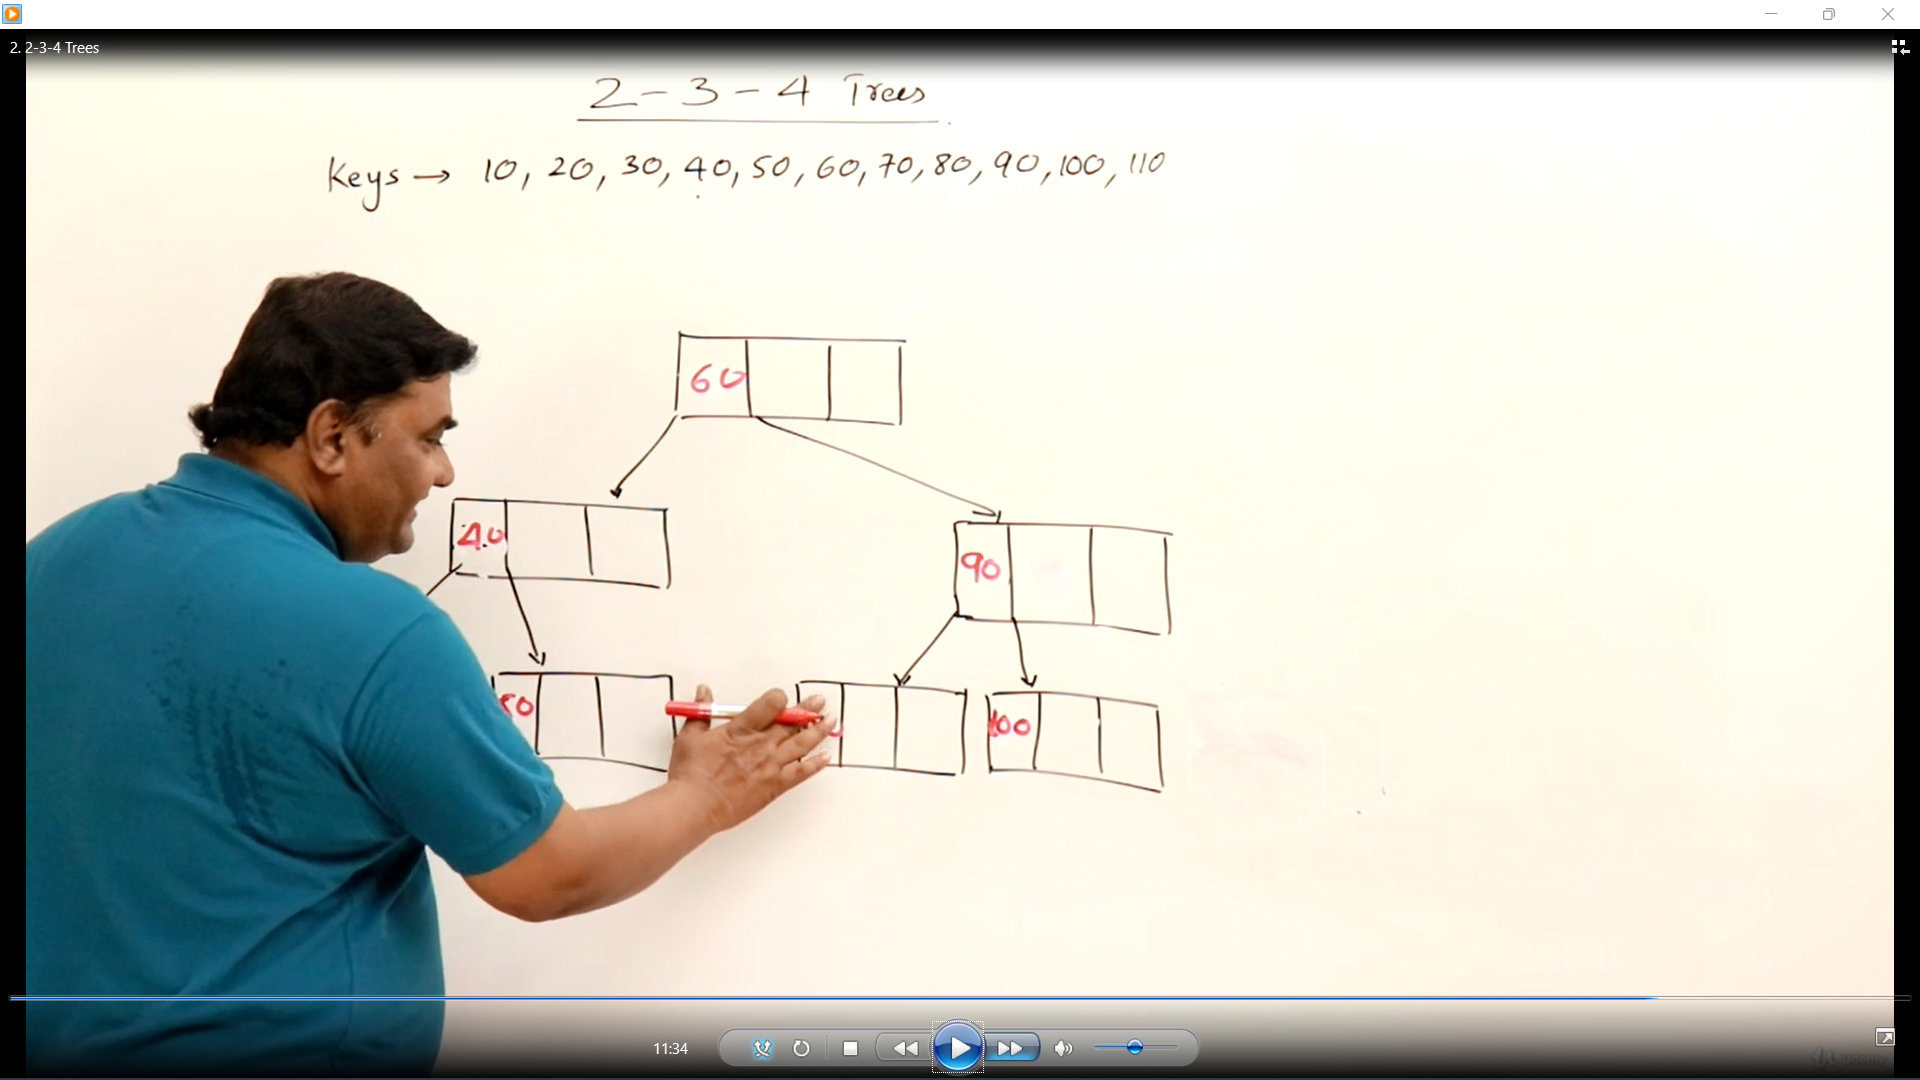 2. 2-3-4 Trees
2-3-4 Trees
Keys → 10, 20, 30, 40, 50, 60, 70, 80, 90, 100, 110
60
40
90
50
100
11:34
Udemy